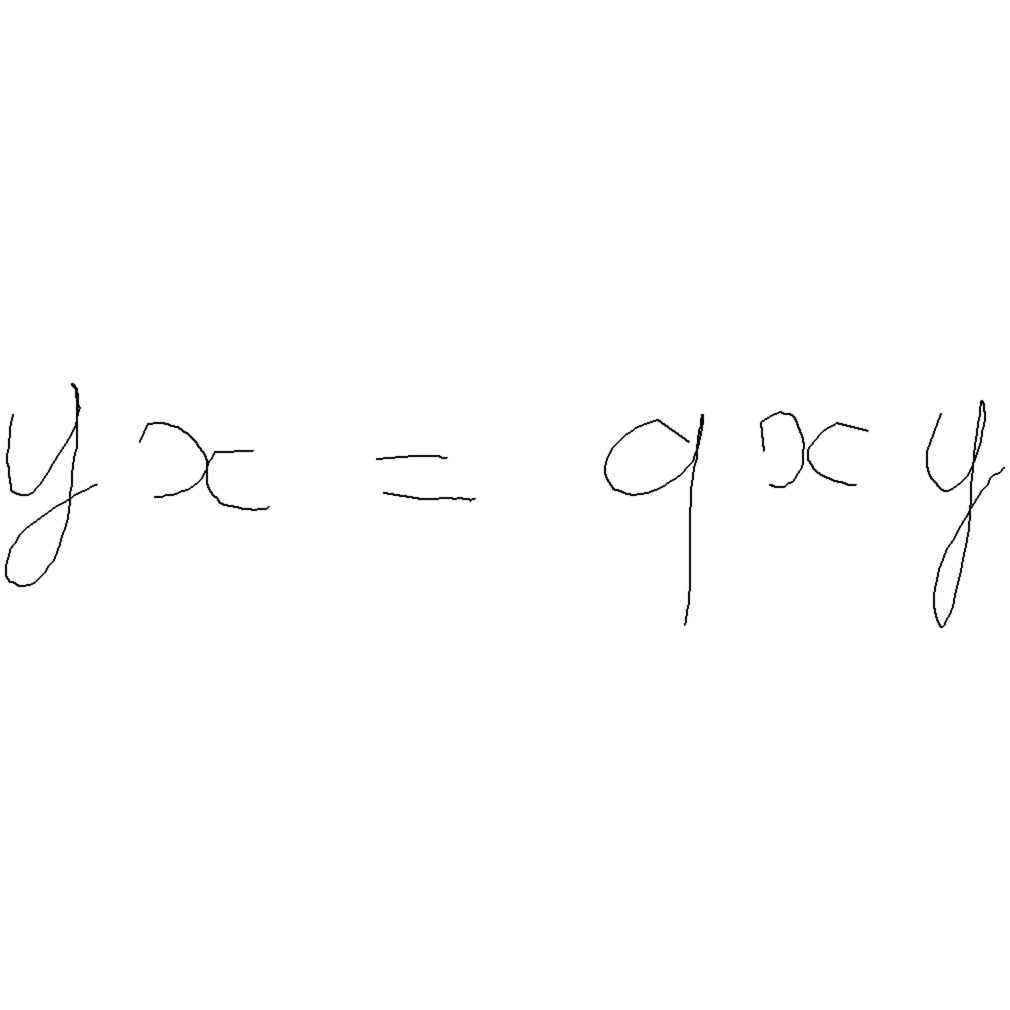 yx = qxy